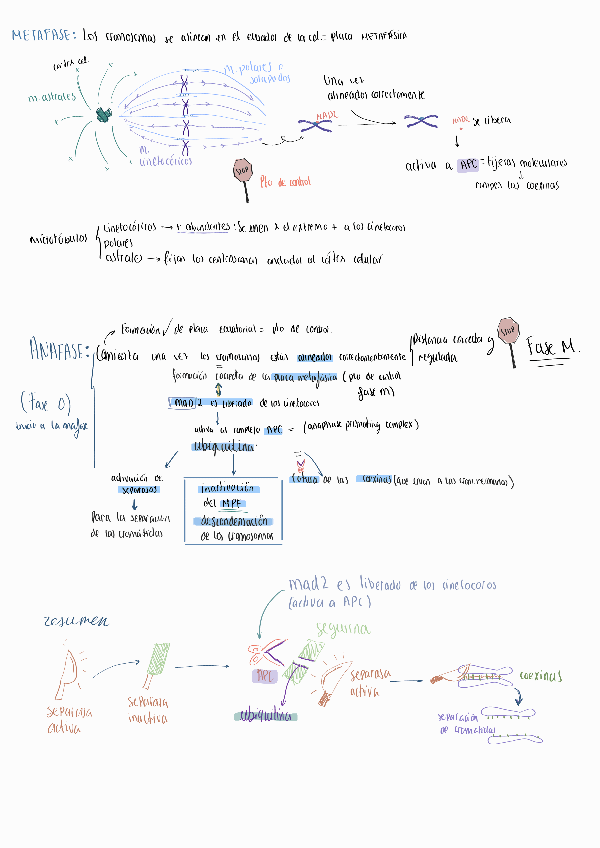 METAFASE: los cromosomas se alinean en el ecuador de la cel. = placa METAFÁSICA
cortex cel.
M. polares o
solapados
M. astrales
M.
cinetocóricos
Una vez
alineados correctamente
MAD2
MAD2 se libera
activa a APC = tijeras moleculares
rompes las coexinas
STOP
Pto de control
microtúbulos
cinetocóricos → + abundantes: Se unen x el extremo + a los cinetocoros
polares
astrales → fijan los centrosomas anclados al córtex celular
Formación de placa ecuatorial = pto de control
ANAFASE:
Comienza una vez los cromosomas estás alineados correctamente
Distancia correcta y
regulada
STOP
Fase M.
formación correcta de la placa metafásica (pto de control
fase M)
(Fase C)
inicio a la anafase
MAD 2 es liberado de los cinetocoros
activa al complejo APC = (anaphase promoting complex)
ubiquitina
activación de
separasas
Para la separación
de las cromátidas
inactivación
del MPF
descondensación
de los cromosomas
rotura de las coexinas (que unen a las cromátidas)
mad2 es liberado de los cinetocoros
(activa a APC)
resumen
segurina
APC
ubiquitina
separasa
activa
separasa
inactiva
separasa
activa
coexinas
separación
de cromátidas